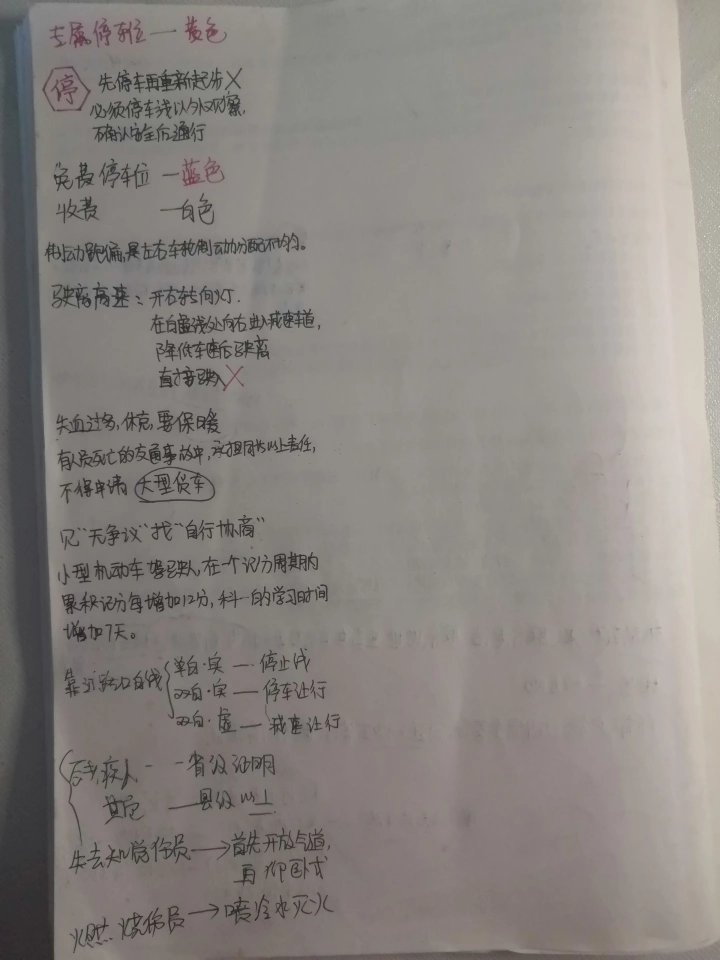 专属停车位—黄色
停 先停车再重新起步×
必须停车线以外观察,
确认安全后通行
免费停车位—蓝色
收费 —白色
制动跑偏,是左右车轮制动力分配不均匀。
驶离高速:开右转向灯.
在白虚线处向右进入减速车道,
降低车速后驶离
直接驶入×
失血过多,休克,要保暖
有人员死亡的交通事故中,承担同等以上责任,
不得申请 大型货车
见"无争议"找"自行协商"
小型机动车驾驶人,在一个记分周期内
累积记分每增加12分,科一的学习时间
增加7天。
靠近路口白线 单白·实 — 停止线
双白·实 — 停车让行
双白·虚 — 减速让行
残疾人 — 省级证明
其它 — 县级以上
失去知觉伤员→首先开放气道,
再 仰卧式
燃烧伤员→喷冷水灭火